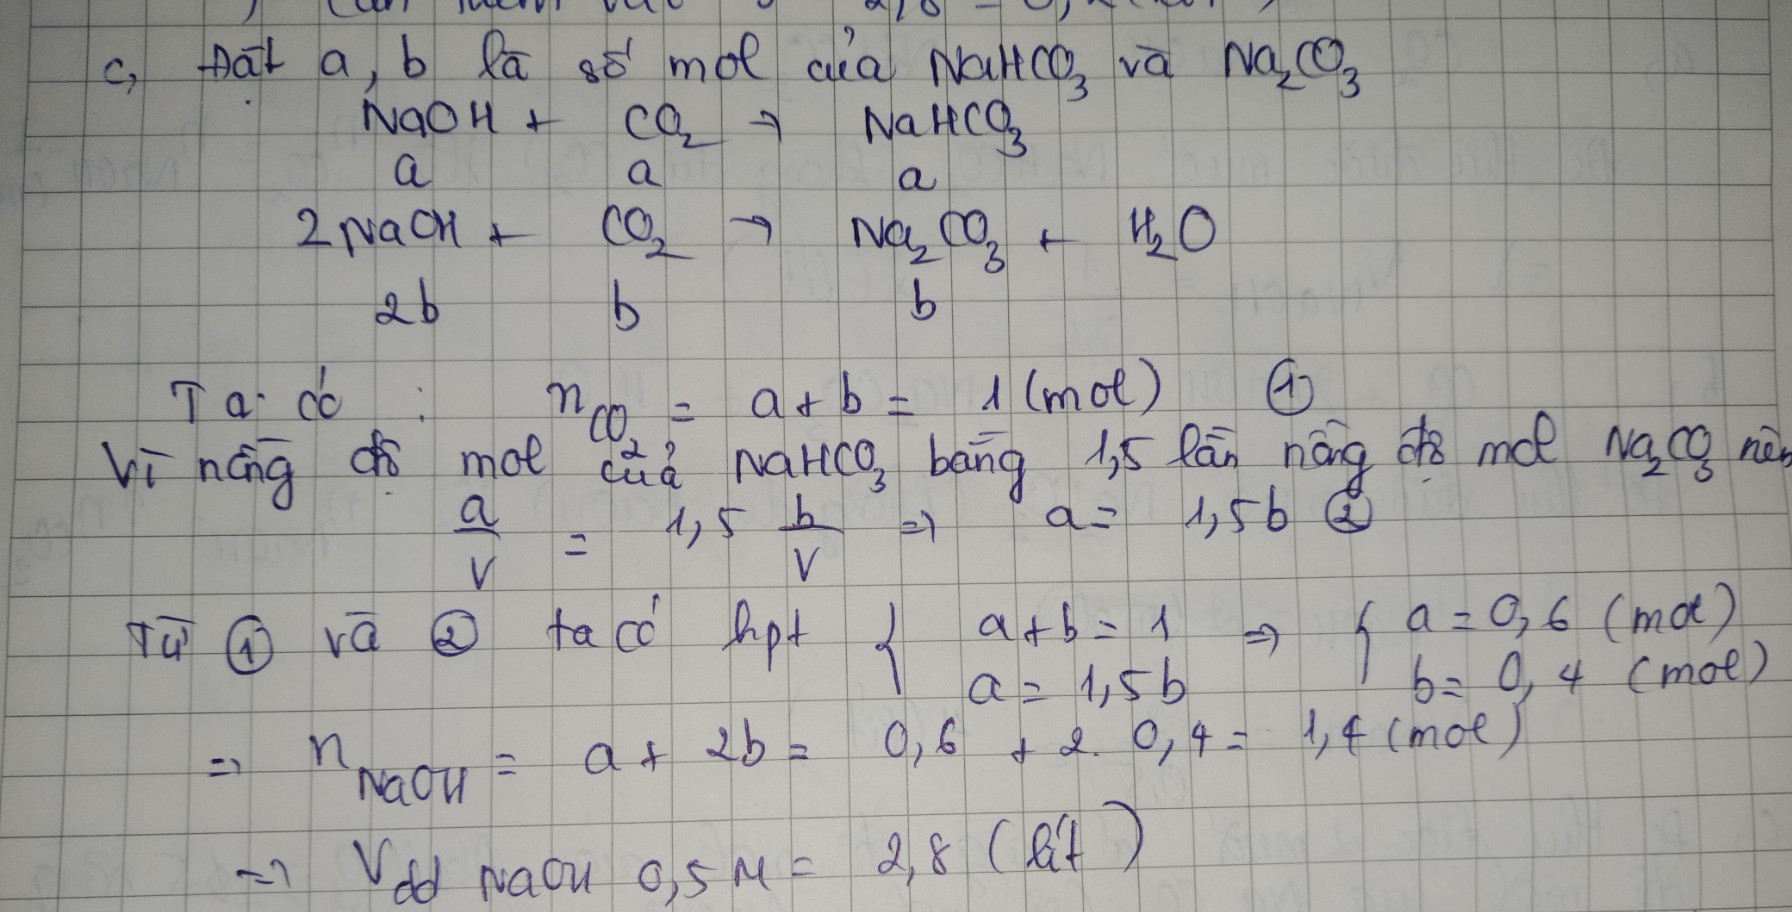 c, Đặt a, b là số mol của NaHCO₃ và Na₂CO₃
NaOH + CO₂ → NaHCO₃
a a a
2NaOH + CO₂ → Na₂CO₃ + H₂O
2b b b
Ta có : n_CO₂ = a + b = 1 (mol) ①
Vì nồng độ mol của NaHCO₃ bằng 1,5 lần nồng độ mol Na₂CO₃ nên
a/V = 1,5 b/V ⇒ a = 1,5b ②
Từ ① và ② ta có hpt { a + b = 1 ⇒ { a = 0,6 (mol)
a = 1,5b b = 0,4 (mol)
⇒ n_NaOH = a + 2b = 0,6 + 2. 0,4 = 1,4 (mol)
⇒ V_dd NaOH 0,5M = 2,8 (lít)